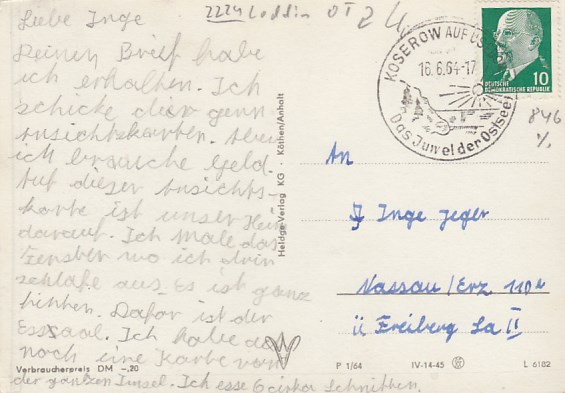 Liebe Inge
Deinen Brief habe
ich erhalten. Ich
schicke dier gern
Ansichtskarten. Aber
ich brauche Geld.
Auf dieser Ansichts-
karte ist unser Heim
darauf. Ich Male das
Fensber wo ich drin
schlafe aus. Es ist ganz
hinten. Dafor ist der
Esssaal. Ich habe
noch eine Karbe von
der ganzen Insel. Ich esse 6 cirka Schnitten.
Verbraucherpreis DM –,20
Heldge-Verlag KG · Köthen/Anhalt
2224 Loddin
KOSEROW AUF
16.6.64-17
Das Juwel der Ostsee
DEUTSCHE
DEMOKRATISCHE REPUBLIK
10
846
An
Inge Jeger
Nassau/Erz 110
ü Freiberg Sa II
P 1/64 IV-14-45 L 6182